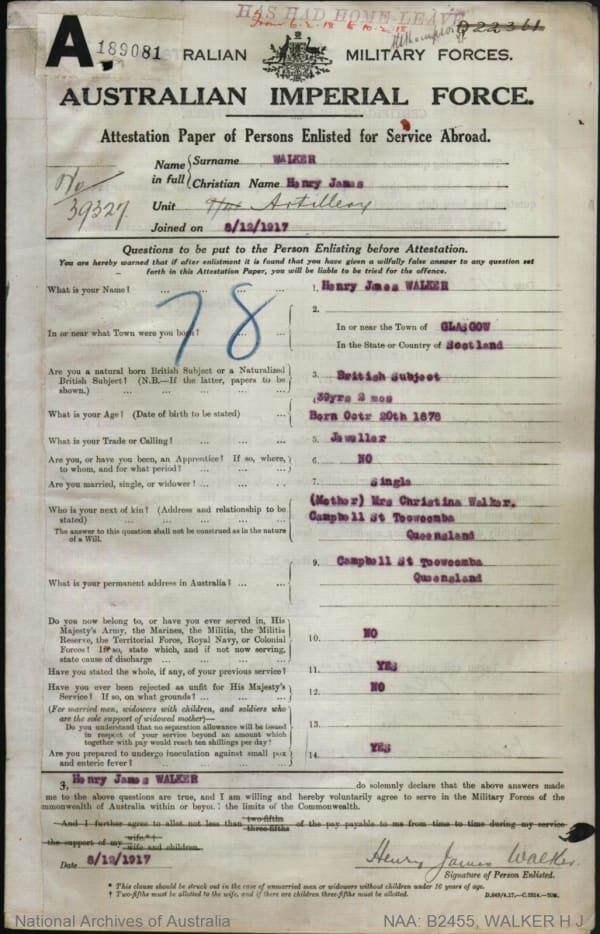 HAS HAD HOME LEAVE
From 6.2.18 to 10.2.18
D22361
A
189081
RALIAN MILITARY FORCES.
AUSTRALIAN IMPERIAL FORCE.
Attestation Paper of Persons Enlisted for Service Abroad.
No 39327
Name in full
Surname WALKER
Christian Name Henry James
Unit Artillery
Joined on 8/12/1917
Questions to be put to the Person Enlisting before Attestation.
You are hereby warned that if after enlistment it is found that you have given a wilfully false answer to any question set
forth in this Attestation Paper, you will be liable to be tried for the offence.
78
What is your Name? ... ... ... 1. Henry James WALKER
In or near what Town were you born? ... ... 2.
In or near the Town of GLASGOW
In the State or Country of Scotland
Are you a natural born British Subject or a Naturalized
British Subject? (N.B.—If the latter, papers to be
shown.) ... ... ... 3. British Subject
What is your Age? (Date of birth to be stated) ... 4. 39yrs 2 mos
Born Octr 20th 1878
What is your Trade or Calling? ... ... ... 5. Jeweller
Are you, or have you been, an Apprentice? If so, where,
to whom, and for what period? ... ... ... 6. NO
Are you married, single, or widower? ... ... 7. Single
Who is your next of kin? (Address and relationship to be
stated) ... ... ... ...
The answer to this question shall not be construed as in the nature
of a Will.
(Mother) Mrs Christina Walker.
Campbell St Toowoomba
Queensland
What is your permanent address in Australia? ... ... 9. Campbell St Toowoomba
Queensland
Do you now belong to, or have you ever served in, His
Majesty's Army, the Marines, the Militia, the Militia
Reserve, the Territorial Force, Royal Navy, or Colonial
Forces? If so, state which, and if not now serving,
state cause of discharge ... ... ... 10. NO
Have you stated the whole, if any, of your previous service? 11. YES
Have you ever been rejected as unfit for His Majesty's
Service? If so, on what grounds? ... ... 12. NO
(For married men, widowers with children, and soldiers who
are the sole support of widowed mother)—
Do you understand that no separation allowance will be issued
in respect of your service beyond an amount which
together with pay would reach ten shillings per day? ... 13.
Are you prepared to undergo inoculation against small pox
and enteric fever? ... ... ... 14. YES
I, Henry James WALKER do solemnly declare that the above answers made
me to the above questions are true, and I am willing and hereby voluntarily agree to serve in the Military Forces of the
mmonwealth of Australia within or beyond the limits of the Commonwealth.
And I further agree to allot not less than two-fifths three-fifths of the pay payable to me from time to time during my service
the support of my wife.*† wife and children.
Date 8/12/1917
Henry James Walker.
Signature of Person Enlisted.
* This clause should be struck out in the case of unmarried men or widowers without children under 16 years of age.
† Two-fifths must be allotted to the wife, and if there are children three-fifths must be allotted.
D.849/4.17.—C.2814.—70M.
National Archives of Australia
NAA: B2455, WALKER H J